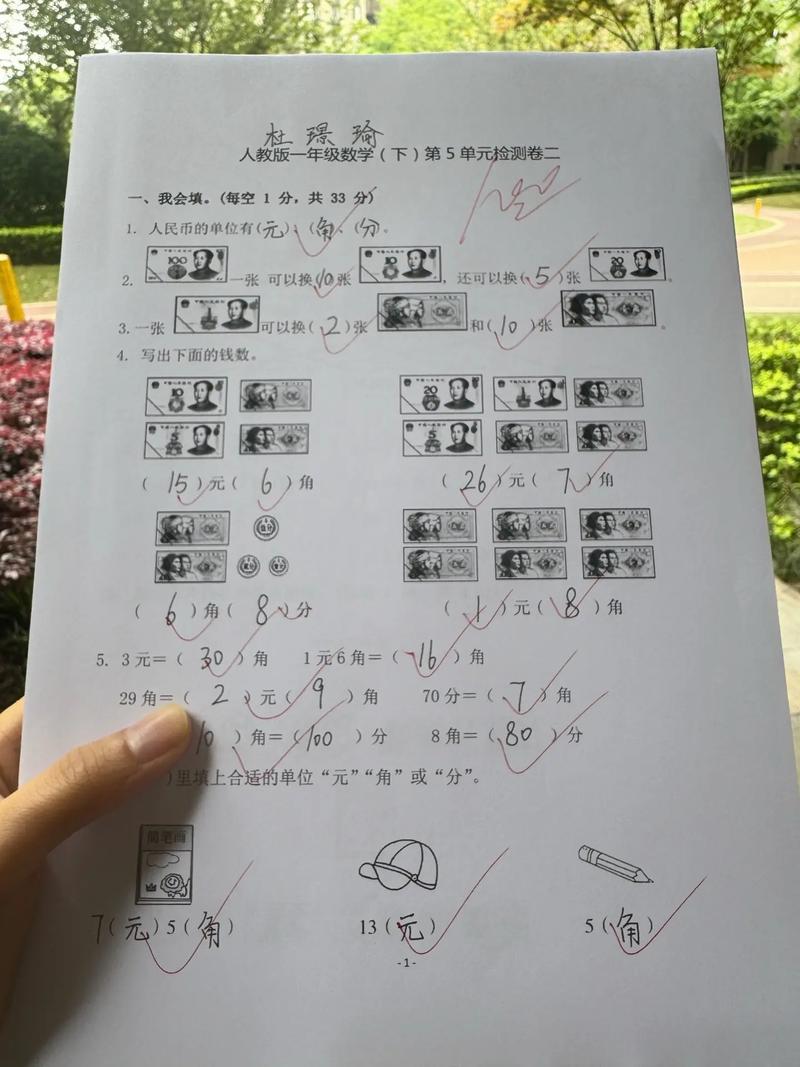 杜璟瑜
人教版一年级数学（下）第5单元检测卷二
100
一、我会填。(每空 1 分，共 33 分)
1. 人民币的单位有(元)、(角、(分)。
2. 100 一张 可以换(10)张 10 ，还可以换(5)张 20 。
3.一张 可以换(2)张 和(10)张 。
4. 写出下面的钱数。
10 20
5 5
(15)元(6)角 (26)元(7)角
(6)角(8)分 (1)元(8)角
5. 3元＝(30)角 1元6角＝(16)角
29角＝(2)元(9)角 70分＝(7)角
10)角＝(100)分 8角＝(80)分
)里填上合适的单位“元”“角”或“分”。
简笔画
7(元)5(角) 13(元) 5(角)
-1-